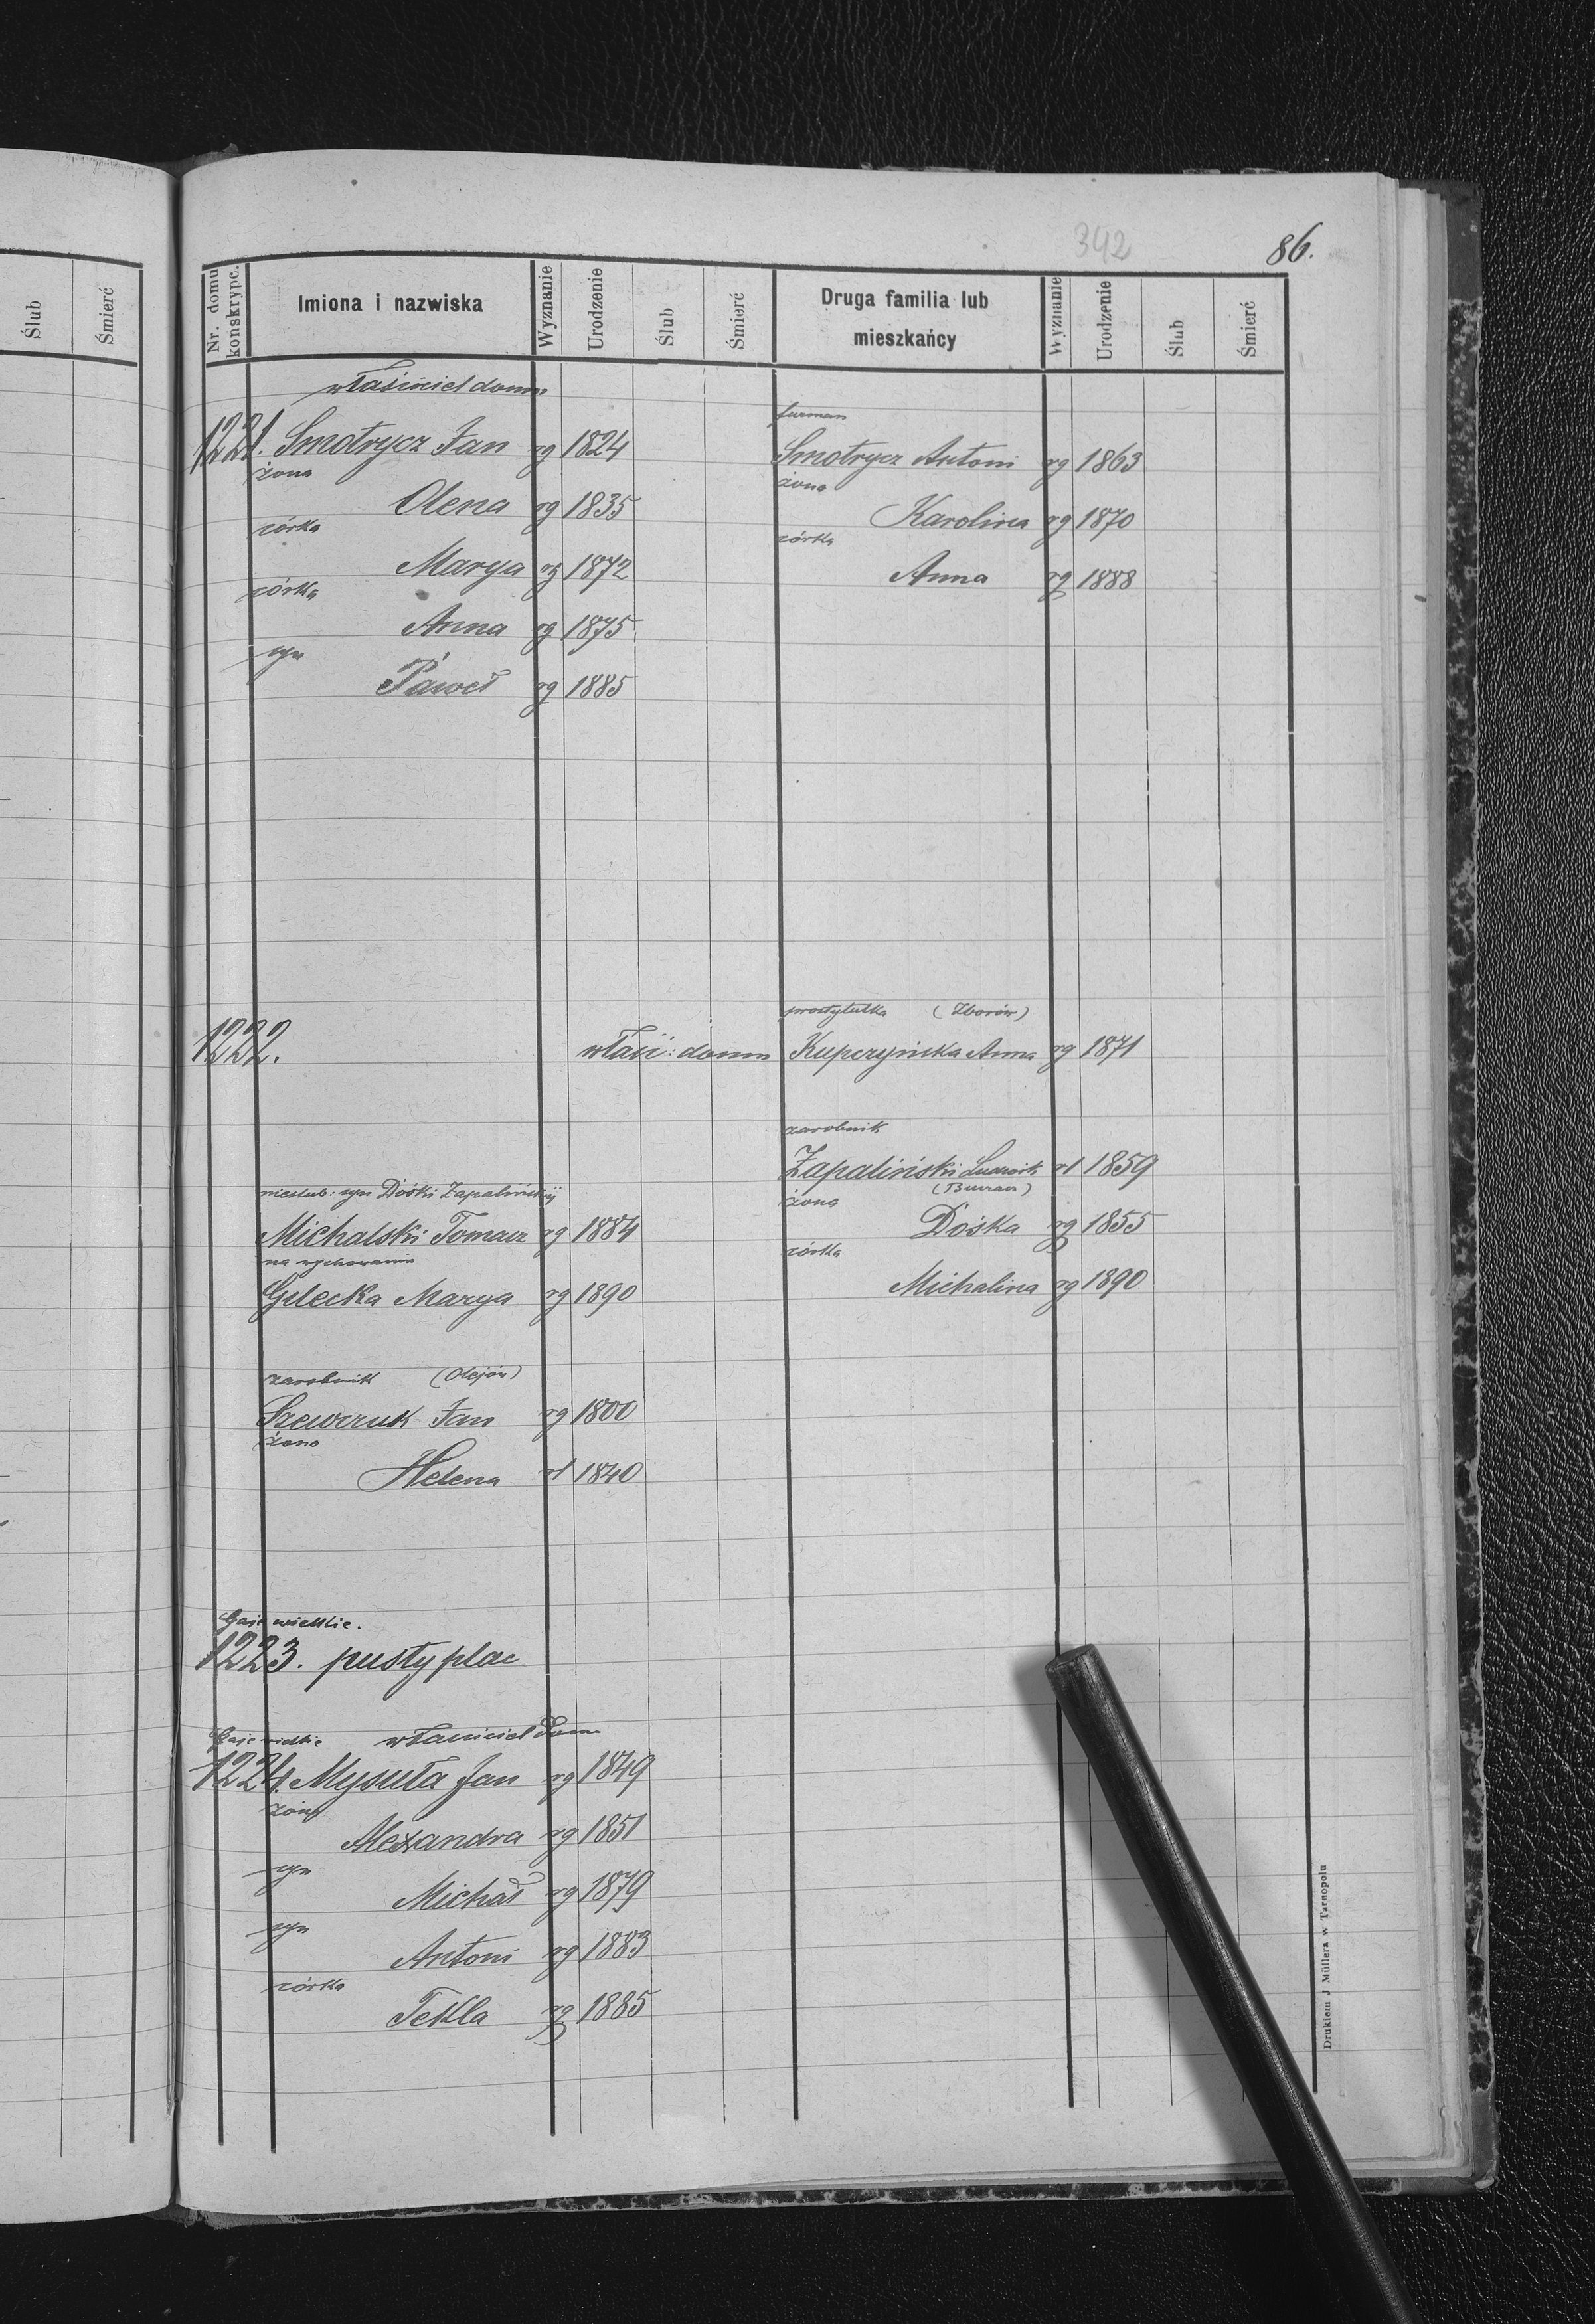 342
86.
Ślub
Śmierć
Nr. domu konskrypc.
Imiona i nazwiska
Wyznanie
Urodzenie
Ślub
Śmierć
Druga familia lub mieszkańcy
Wyznanie
Urodzenie
Ślub
Śmierć
właściciel domu
1221. Smotrycz Jan rg 1824
żona
Olena rg 1835
córka
Marya rg 1872
córka
Anna rg 1875
syn
Paweł rg 1885
furman
Smotrycz Antoni rg 1863
żona
Karolina rg 1870
córka
Anna rg 1888
1222.
właś: domu
prostytutka (Zborów)
Kupczyńska Anna rg 1871
zarobnik
Zapaliński Ludwik rl 1859
żona
Dośka rg 1855
córka
Michalina rg 1890
nieślub: syn Dośki Zapalińskij
Michalski Tomasz rg 1884
na wychowaniu
Gelecka Marya rg 1890
zarobnik (Olejów)
Szewczuk Jan rg 1800
żona
Helena rl 1840
Gaje wielkie.
1223. pusty plac
Gaje wielkie właściciel domu
1224. Mysuła Jan rg 1849
żona
Alexandra rg 1851
syn
Michał rg 1879
syn
Antoni rg 1883
córka
Tekla rg 1885
Drukiem J Müllera w Tarnopolu